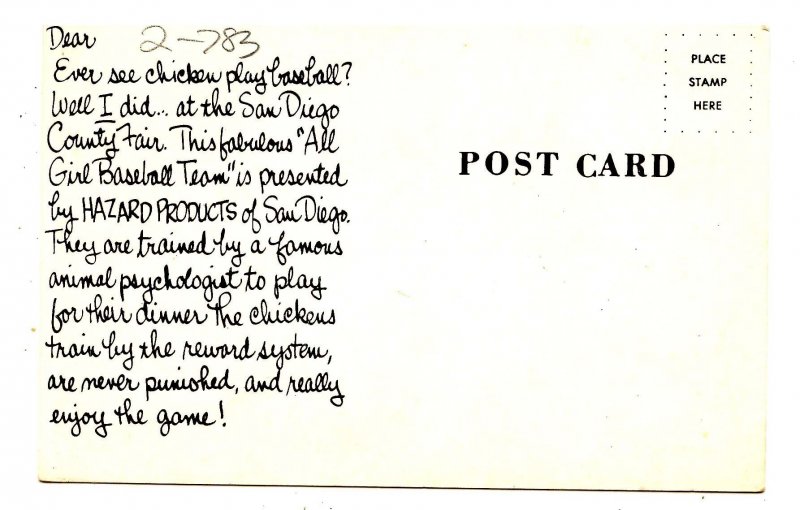 Dear
2-783
Ever see chicken play baseball?
Well I did... at the San Diego
County Fair. This fabulous "All
Girl Baseball Team" is presented
by HAZARD PRODUCTS of San Diego.
They are trained by a famous
animal psychologist to play
for their dinner the chickens
train by the reward system,
are never punished, and really
enjoy the game!
POST CARD
PLACE
STAMP
HERE